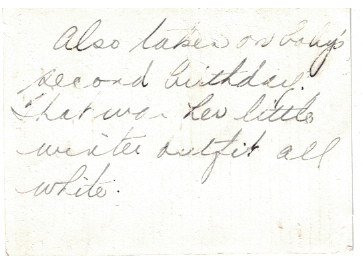 Also taken on baby's
second birthday.
That was her little
winter outfit all
white.